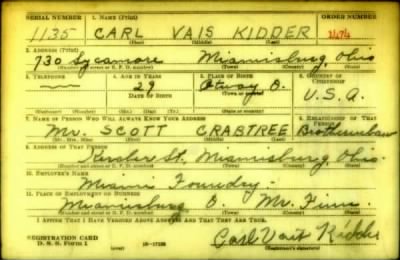 SERIAL NUMBER 1. NAME (Print) ORDER NUMBER
1135 CARL VAIS KIDDER 1474
(First) (Middle) (Last)
2. ADDRESS (Print)
730 Sycamore Miamisburg, Ohio
(Number and street or R. F. D. number) (Town) (County) (State)
3. TELEPHONE 4. AGE IN YEARS 5. PLACE OF BIRTH 6. COUNTRY OF CITIZENSHIP
29 Otway O.
DATE OF BIRTH (Town or county) U.S.A.
(Exchange) (Number) (Mo.) (Day) (Yr.) (State or country)
7. NAME OF PERSON WHO WILL ALWAYS KNOW YOUR ADDRESS 8. RELATIONSHIP OF THAT PERSON
Mr. SCOTT CRABTREE Brotherinlaw
(Mr., Mrs., Miss) (First) (Middle) (Last)
9. ADDRESS OF THAT PERSON
St. Miamisburg, Ohio.
(Number and street or R. F. D. number) (Town) (County) (State)
10. EMPLOYER'S NAME
Miami Foundry.
11. PLACE OF EMPLOYMENT OR BUSINESS
Miamisburg O. Mr.
(Number and street or R. F. D. number) (Town) (County) (State)
I AFFIRM THAT I HAVE VERIFIED ABOVE ANSWERS AND THAT THEY ARE TRUE.
REGISTRATION CARD
D. S. S. Form 1 16-17105 Carl Vais Kidder
(Registrant's signature)